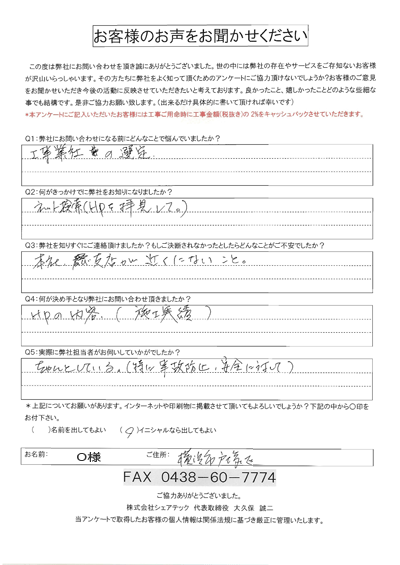 お客様のお声をお聞かせください
この度は弊社にお問い合わせを頂き誠にありがとうございました。世の中には弊社の存在やサービスをご存知ないお客様
が沢山いらっしゃいます。その方たちに弊社をよく知って頂くためのアンケートにご協力頂けないでしょうか?お客様のご意見
をお聞かせいただき今後の活動に反映させていただきたいと考えております。良かったこと、嬉しかったことなどのような些細な
事でも結構です。是非ご協力お願い致します。(出来るだけ具体的に書いて頂ければ幸いです)
*本アンケートにご記入いただいたお客様には工事ご用命時に工事金額(税抜き)の2%をキャッシュバックさせていただきます。
Q1:弊社にお問い合わせになる前にどんなことで悩んでいましたか?
工事業社の選定.
Q2:何がきっかけで弊社をお知りになりましたか?
ネット検索(HPを拝見して。)
Q3:弊社を知りすぐにご連絡頂けましたか?もしご決断されなかったとしたらどんなことがご不安でしたか?
本社、支店が近くにないこと。
Q4:何が決め手となり弊社にお問い合わせ頂きましたか?
HPの内容.(施工実績)
Q5:実際に弊社担当者がお伺いしていかがでしたか?
ちゃんとしている。(特に事故防止、安全に対して)
*上記についてお願いがあります。インターネットや印刷物に掲載させて頂いてもよろしいでしょうか?下記の中から〇印を
お付下さい。
( )名前を出してもよい (〇)イニシャルなら出してもよい
お名前: O様 ご住所: 横浜市戸塚区
FAX 0438-60-7774
ご協力ありがとうございました。
株式会社シェアテック 代表取締役 大久保 誠二
当アンケートで取得したお客様の個人情報は関係法規に基づき厳正に管理いたします。